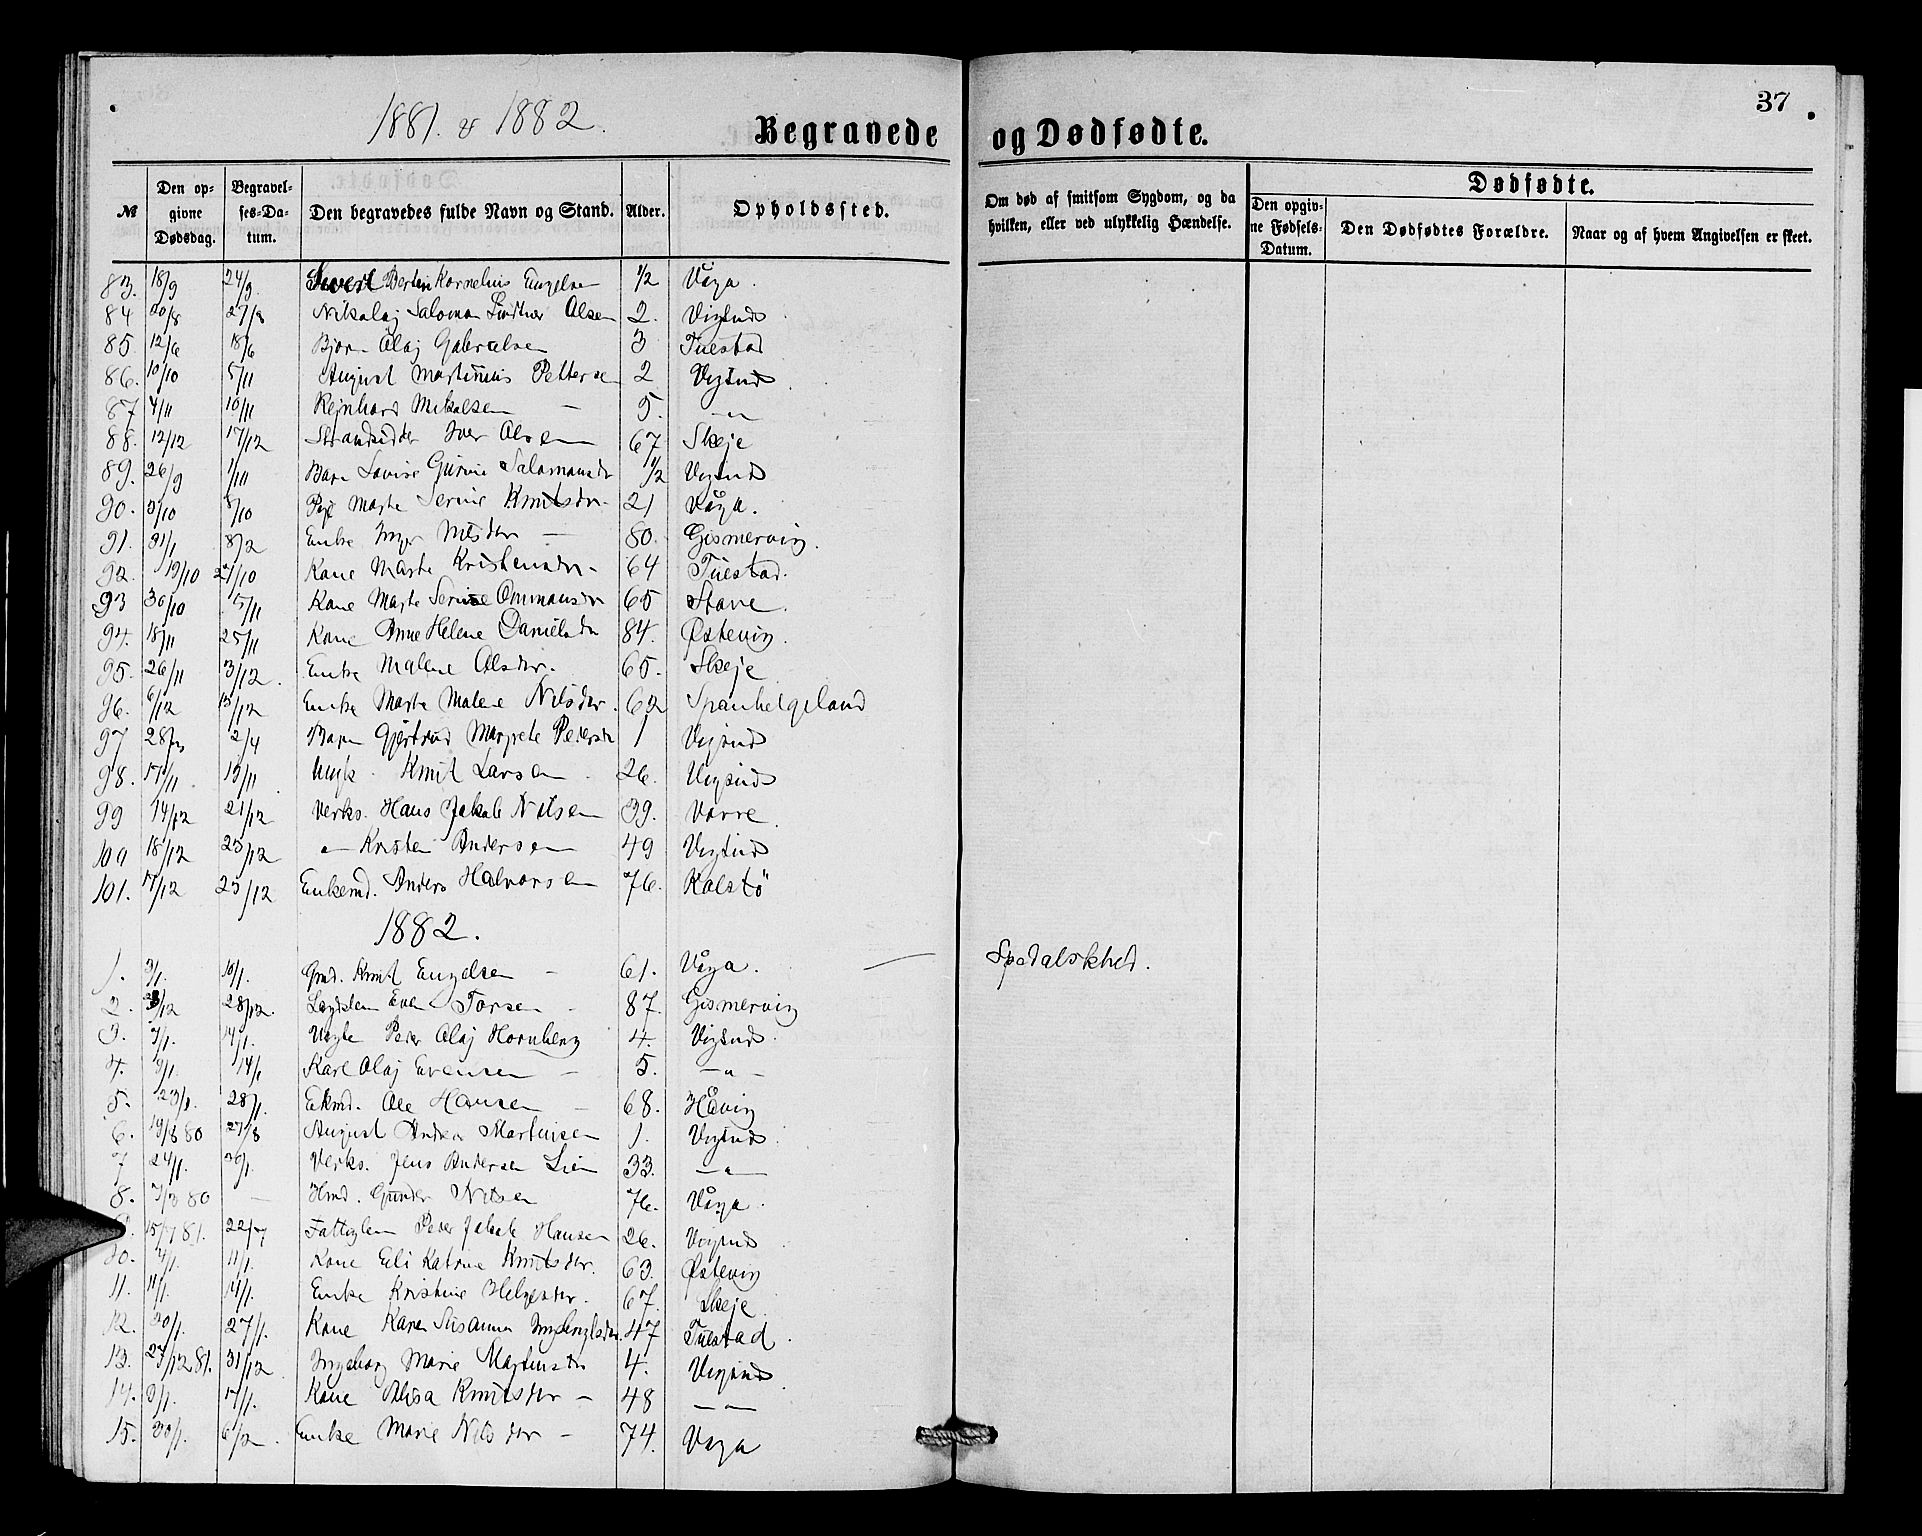 37
1881. & 1882.
Begravede og Dødfødte.
№
Den opgivne Dødsdag.
Begravelses-Datum.
Den begravedes fulde Navn og Stand.
Alder.
Opholdssted.
Om død af smitsom Sygdom, og da hvilken, eller ved ulykkelig Hændelse.
Dødfødte.
Den opgivne Fødsels-Datum.
Den Dødfødtes Forældre.
Naar og af hvem Angivelsen er skeet.
83. 18/9 24/9. Sivert Kornelius Engelsen 1/2 Våga.
84 20/8 27/8 Nikolaj Salomon Olsen 2. Vigsnæs
85. 12/6 18/6 Bjorn Olaj Gabrielsen 3 Tuestad
86. 10/10 5/11 August Martinius Pettersen 2 Vigsnæs
87 4/11 10/11 Rejnhard Mikalsen – 5. –"–
88. 12/12 17/12 Strandsidder Iver Olsen 67 Skeje
89. 26/9 1/11 Barn Lovise Gurine Salamonsdr 1/2 Vigsnæs
90. 3/10 8/10 Pige Marte Serine Knutsdr. 21 Våga.
91. 31/1 8/2 Enke Inger – 80. Gismervig.
92. 19/10 21/10 Kone Marte Kristensdr – 64 Tuestad.
93 30/10 5/11 Kone Marte Serine Ommunsdr 65 Stave.
94. 18/11 25/11 Kone Anne Helene Danielsdr 84. Østevig.
95. 26/11 3/12. Enke Malene Olsdr. 65. Skeje
96. 6/12 13/12 Enke Marte Malene Nilsdr. 62 Spanhelgeland
97 28/3 2/4 Barn Gjertrud Margrete Pedersdr 1 Vigsnæs
98. 17/11 19/11 Ungk. Knut Larsen 26. Vigsnæs
99 14/12 21/12 Verks. Hans Jakob Nilsen 39. Vorre.
100 18/12 25/12 –"– Kristen Andersen 49 Vigsnæs
101. 17/12 25/12 Enkemd. Anders Halvorsen 76. Kolstö
1882.
1. 3/1. 10/1. Gmd. Knut Engelsen – 61. Våga. — Spedalskhed.
2. /12 28/12. Even Torsen – 87. Gismervig
3. 7/1. 14/1. Peder Olaj Hornberg 4. Vigsnæs.
4. 9/1. 14/1 Karl Olaj Evensen – 5. –"–
5. 23/1. 28/1. Ekmd. Ole Hansen – 68. Håvig
6. 19/8 80 27/8 August Andreas Martinsen 1. Vigsnæs.
7 24/1. 30/1. Verks. Jens Andersen Lien 33. –"–
8. 7/3 80 – Hmd. Gunder Nilsen 76. Våga.
9. 15/7 81. 22/7 Fattiglem Peder Jakob Hansen 26. Vigsnæs
10. 4/1. 11/1. Kone Eli Katrine Knutsdr. 63. Østevig
11. 11/1. 14/1. Enke Kristine Helgesdr. 67. Skeje
12. 20/1. 27/1. Kone Karen Susanna Ingebrigtsdr. 47 Tuestad.
13. 27/12 81. 31/12. Ingeborg Marie Martinsdr 4. Vigsnæs.
14. 9/1. 17/1. Kone Elisa Knutsdr – 48 –"–
15. 30/1. 6/2. Enke Marie Nilsdr – 74. Vaga